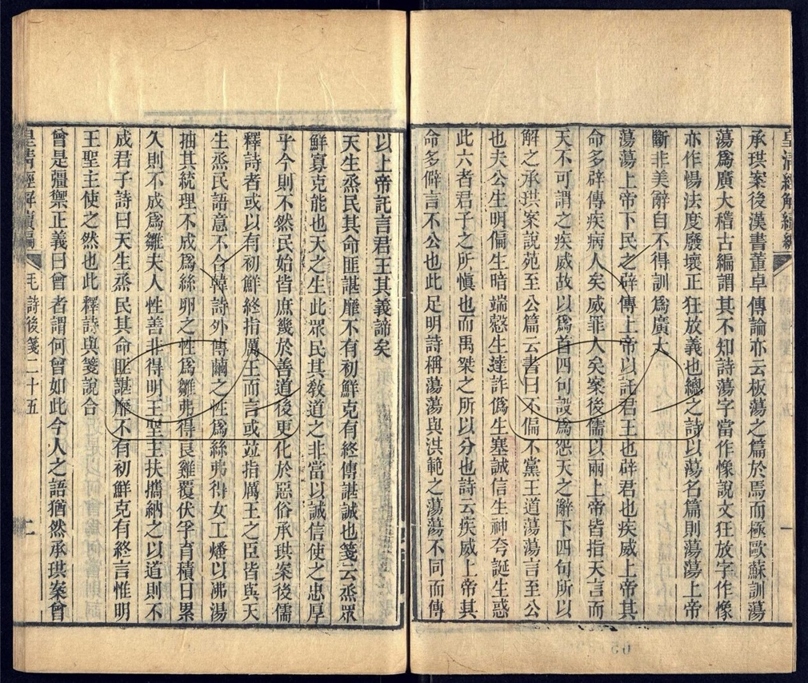 皇清經解續編
一
承珙案後漢書董卓傳論亦云板蕩之篇於焉而極歐蘇訓蕩
蕩爲廣大稽古編謂其不知詩蕩字當作像說文狂放字作像
亦作愓法度廢壞正狂放義也總之詩以蕩名篇則蕩蕩上帝
斷非美辭自不得訓爲廣大
蕩蕩上帝下民之辟傳上帝以託君王也辟君也疾威上帝其
命多辟傳疾病人矣威罪人矣案後儒以兩上帝皆指天言而
天不可謂之疾威故以爲首四句設爲怨天之辭下四句所以
解之承珙案說苑至公篇云書曰不偏不黨王道蕩蕩言至公
也夫公生明偏生暗端慤生達詐僞生塞誠信生神夸誕生惑
此六者君子之所愼也而禹桀之所以分也詩云疾威上帝其
命多僻言不公也此足明詩稱蕩蕩與洪範之蕩蕩不同而傳
以上帝託言君王其義諦矣
天生烝民其命匪諶靡不有初鮮克有終傳諶誠也箋云烝眾
鮮寡克能也天之生此眾民其敎道之非當以誠信使之忠厚
乎今則不然民始皆庶幾於善道後更化於惡俗承珙案後儒
釋詩者或以有初鮮終指厲王而言或竝指厲王之臣皆與天
生烝民語意不合韓詩外傳繭之性爲絲弗得女工燔以沸湯
抽其統理不成爲絲卵之性爲雛弗得良雞覆伏孚育積日累
久則不成爲雛夫人性善非得明王聖主扶攜納之以道則不
成君子詩曰天生烝民其命匪諶靡不有初鮮克有終言惟明
王聖主使之然也此釋詩與箋說合
曾是彊禦正義曰曾者謂何曾如此今人之語猶然承珙案曾
皇清經解續編
毛詩後箋二十五
二